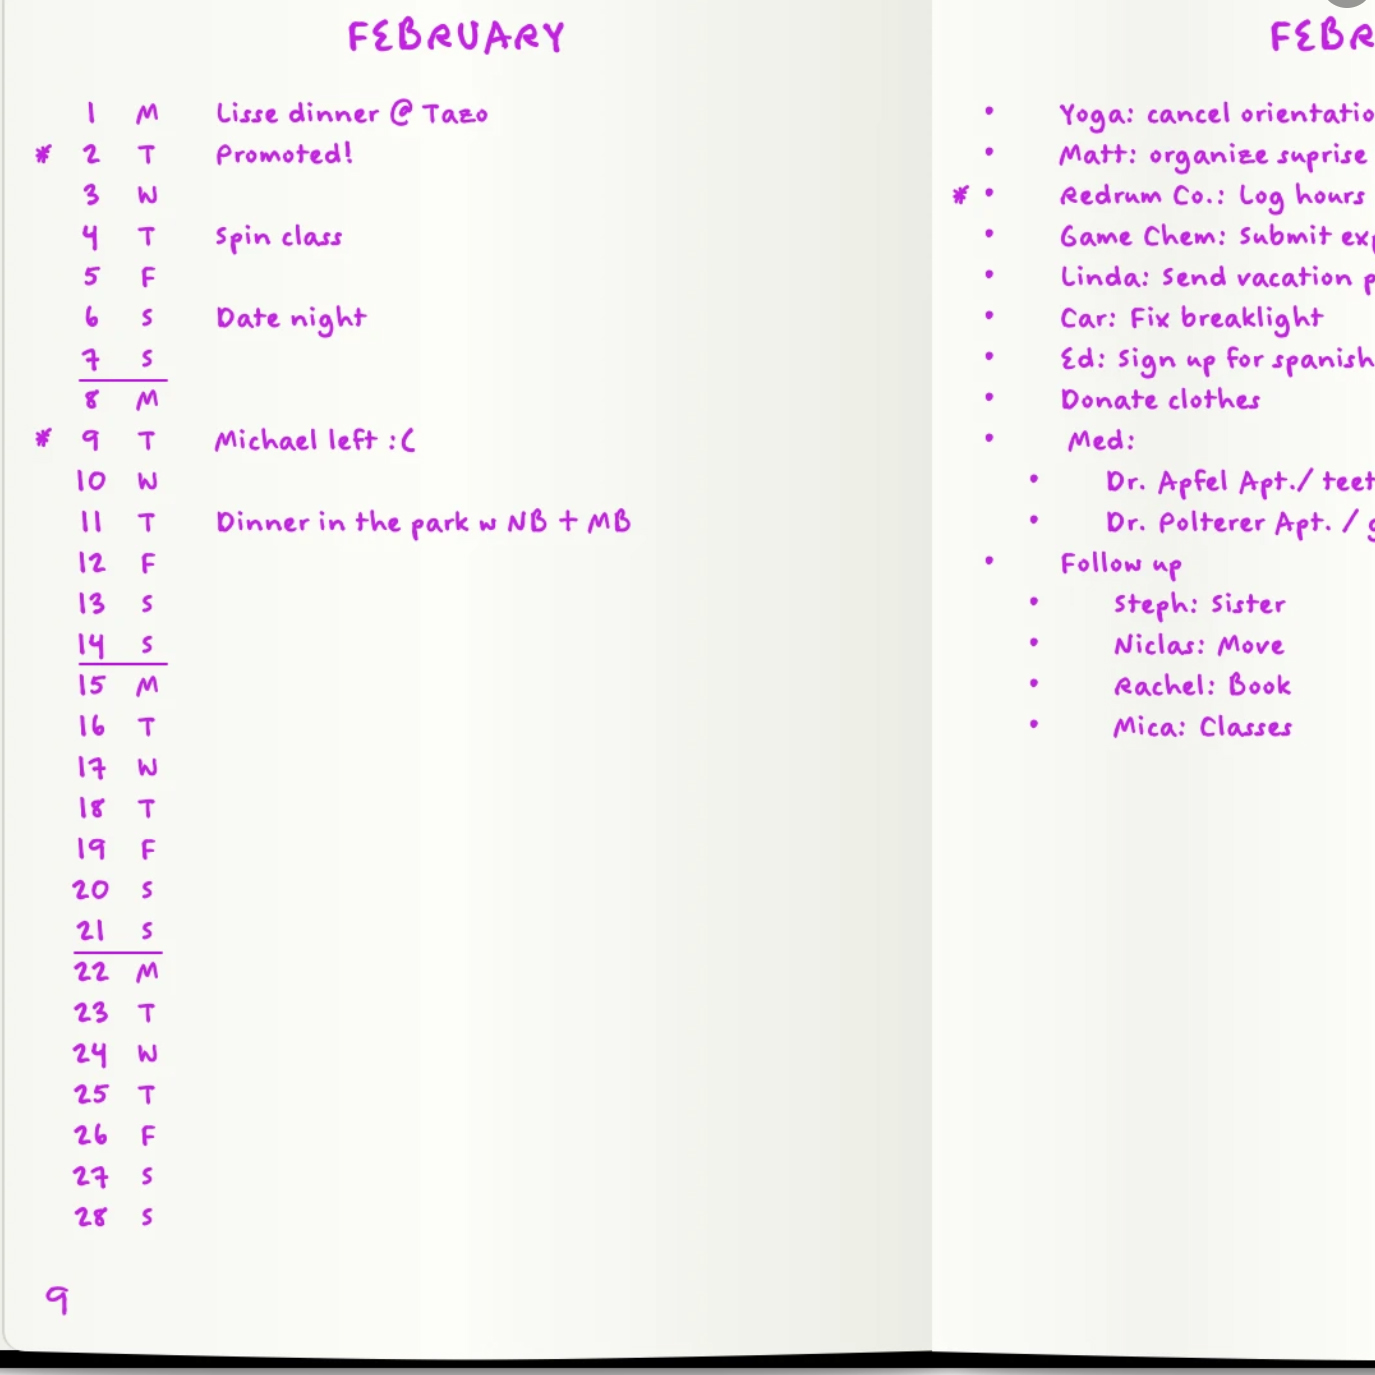 FEBRUARY
1 M Lisse dinner @ Tazo
* 2 T Promoted!
3 W
4 T Spin class
5 F
6 S Date night
7 S
8 M
* 9 T Michael left :(
10 W
11 T Dinner in the park w NB + MB
12 F
13 S
14 S
15 M
16 T
17 W
18 T
19 F
20 S
21 S
22 M
23 T
24 W
25 T
26 F
27 S
28 S
9
FEBR
• Yoga: cancel orientatio
• Matt: organize suprise
* • Redrum Co.: Log hours
• Game Chem: Submit exp
• Linda: Send vacation p
• Car: Fix breaklight
• Ed: Sign up for spanish
• Donate clothes
• Med:
• Dr. Apfel Apt./ teet
• Dr. Polterer Apt. / g
• Follow up
• Steph: Sister
• Niclas: Move
• Rachel: Book
• Mica: Classes